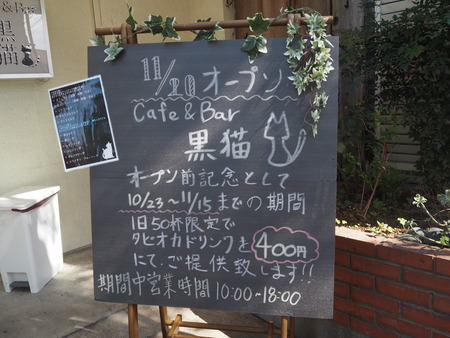 & Bar
黒猫
11/20 オープン
Cafe & Bar
黒猫
オープン前記念として
10/23〜11/15までの期間
1日50杯限定で
タピオカドリンクを400円
にて、ご提供致します!!
期間中営業時間 10:00-18:00